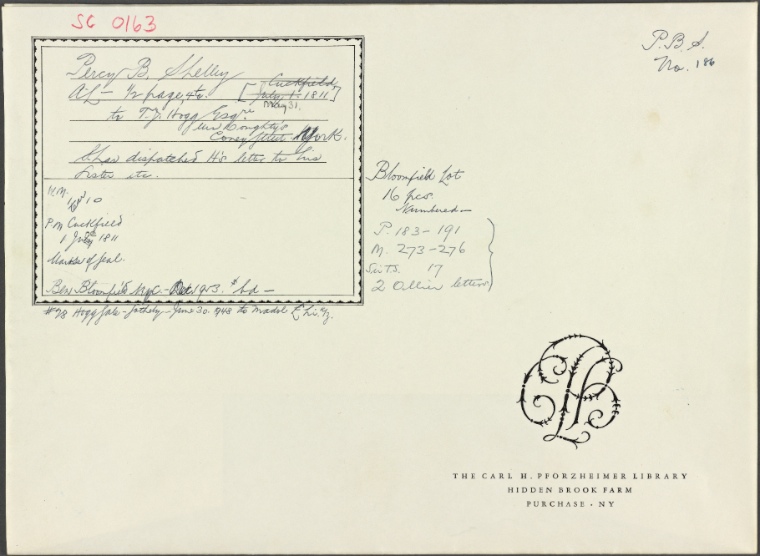 SC 0163
P. B. S.
No. 186
Percy B. Shelley
AL — ½ page, 4to. [Cuckfield
July 1, 1811]
May 31.
to T. J. Hogg Esq.re
Coney Street York.
S has dispatched H's letter to his
sister etc.
10
P M Cuckfield
1 July 1811
Marks of seal.
Ben Bloomfield NYC — Oct 1953.
#78 Hogg Sale — Sotheby — June 30. 1948 to
Bloomfield Lot
16 pcs.
Numbered —
P. 183 - 191
M. 273 - 276
17
2 Ollier letters
THE CARL H. PFORZHEIMER LIBRARY
HIDDEN BROOK FARM
PURCHASE · NY